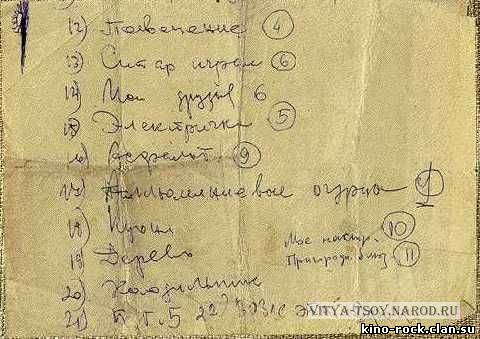 12) Посвещение 4
13) Ситар играл 6
14) Мои друзья 6
15) Электричка 5
16) Асфальт 9
17) Аллюминиевые огурцы
18)
Мое настр. 10
19) Дерево
Пригородн. блюз 11
20)
21) 22)
VITYA-TSOY.NAROD.RU
kino-rock.clan.su